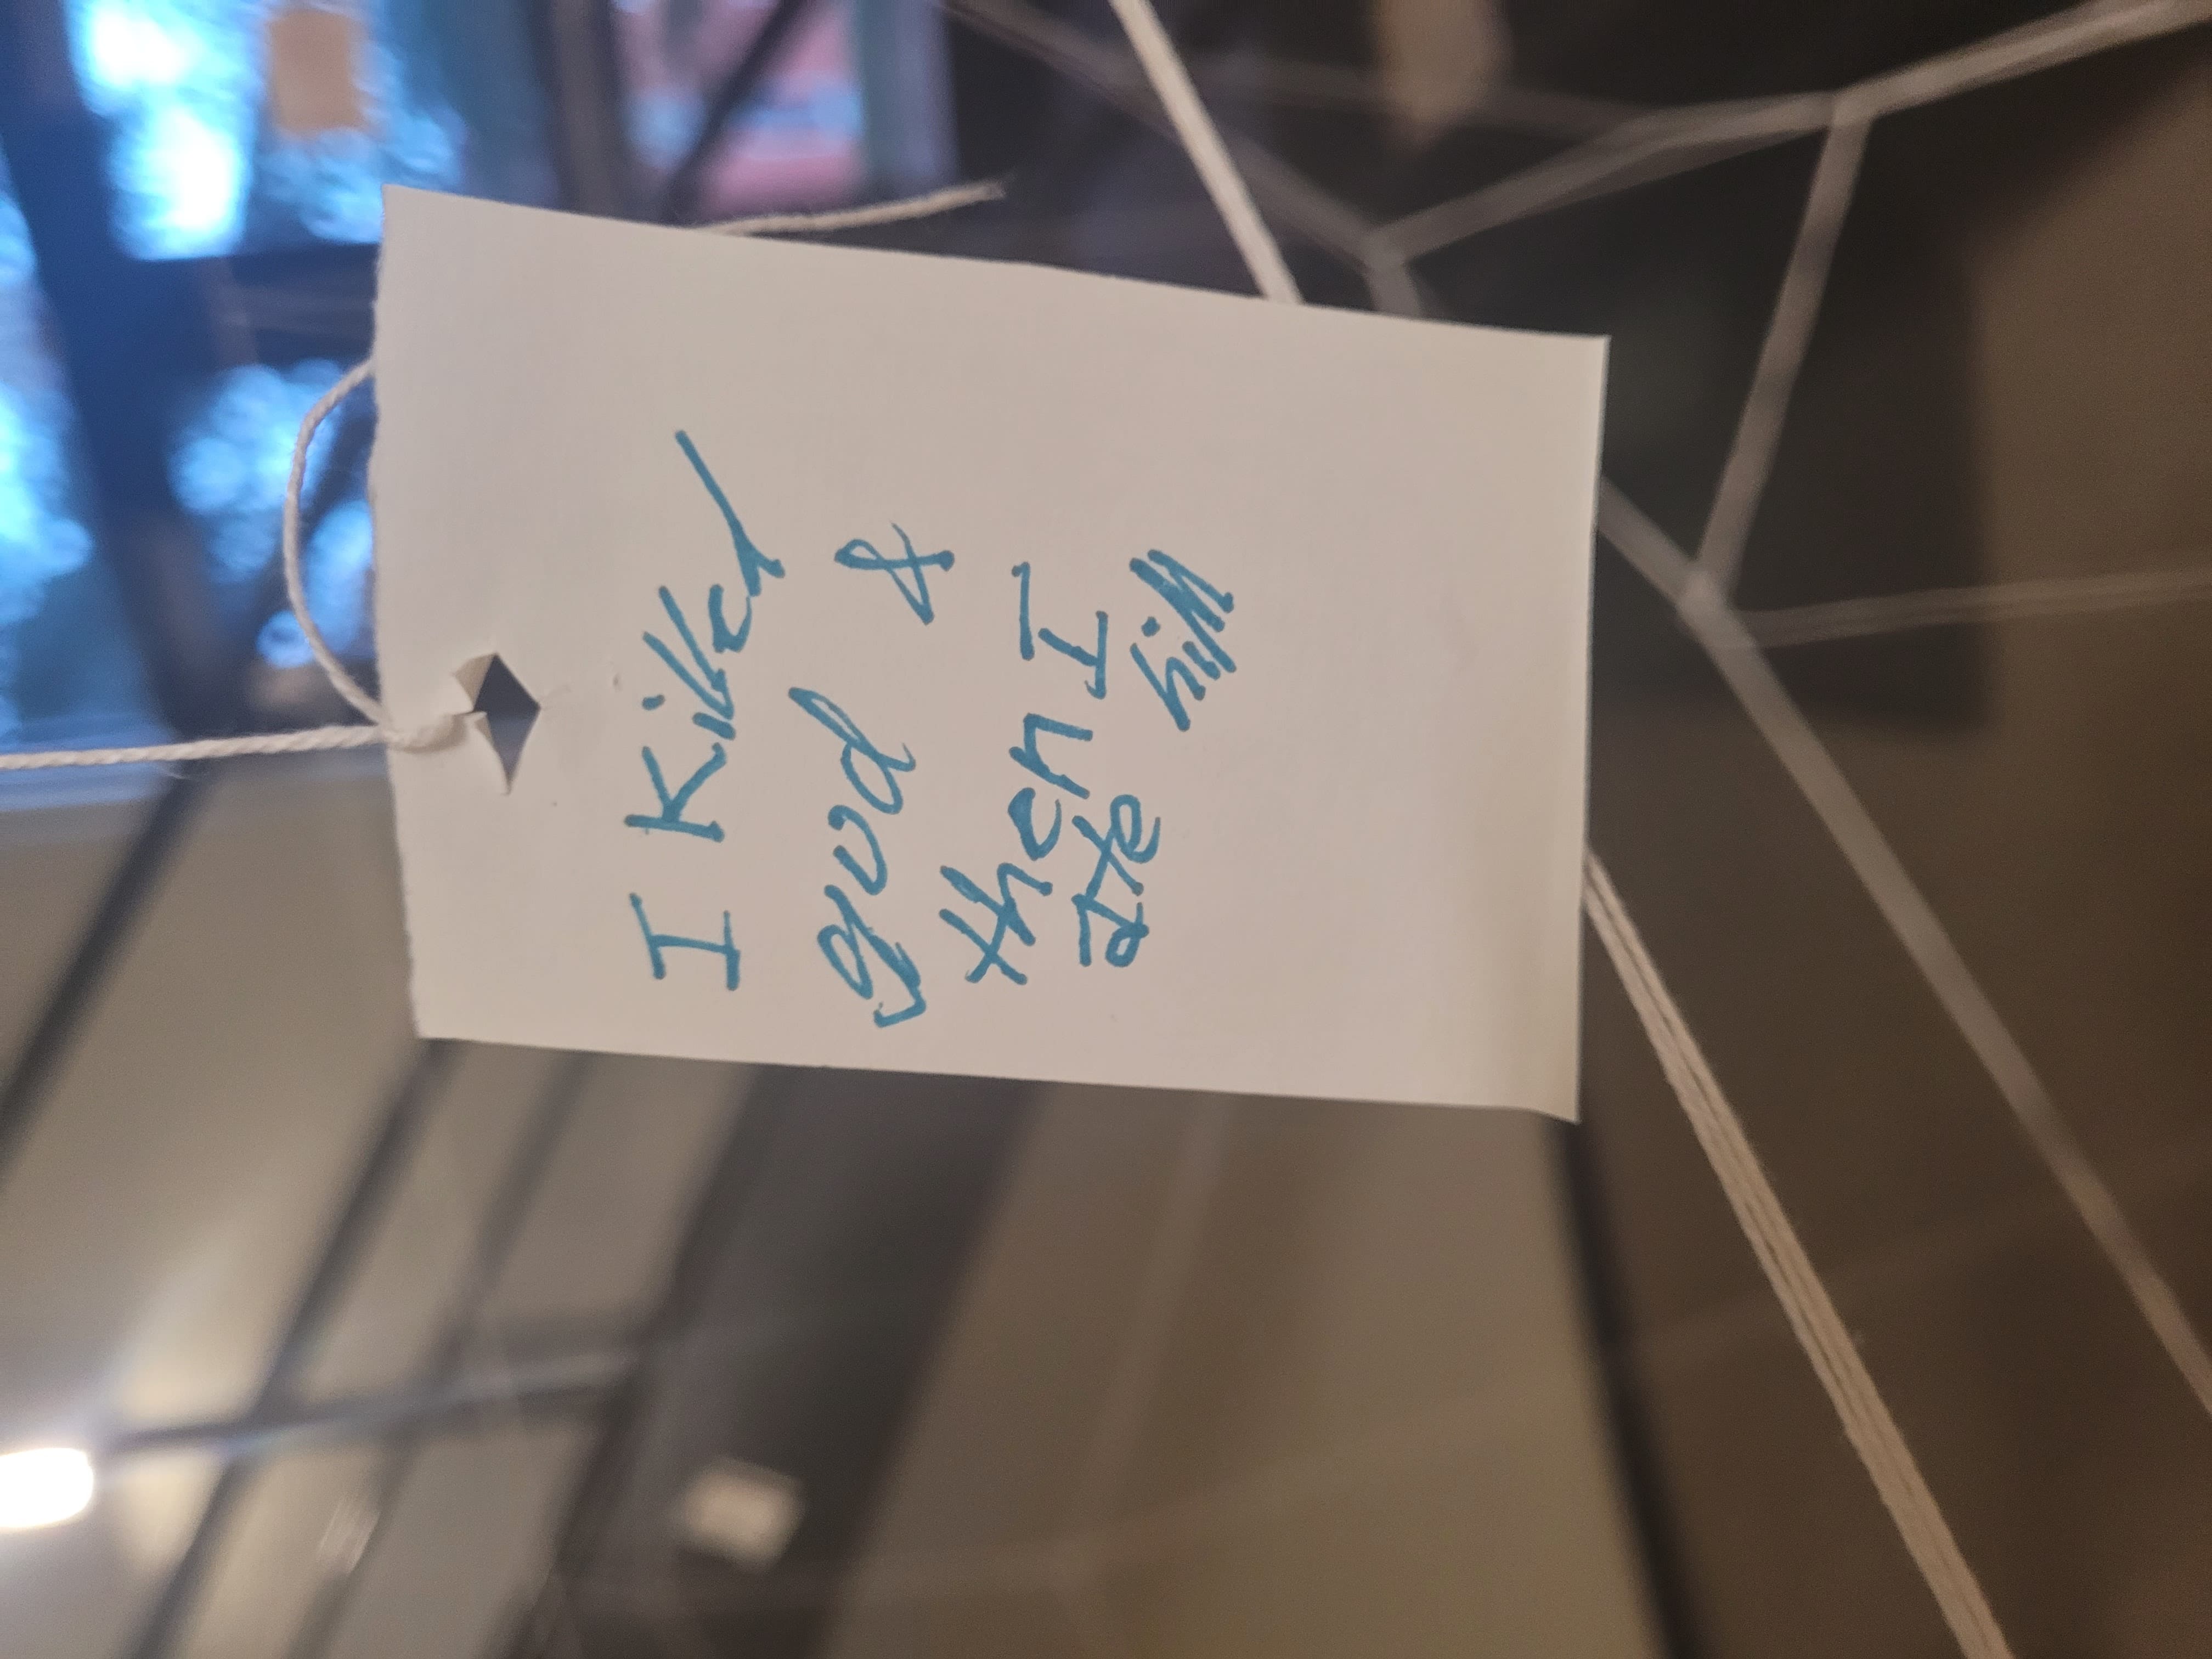 I Killed
god &
then I
ate him